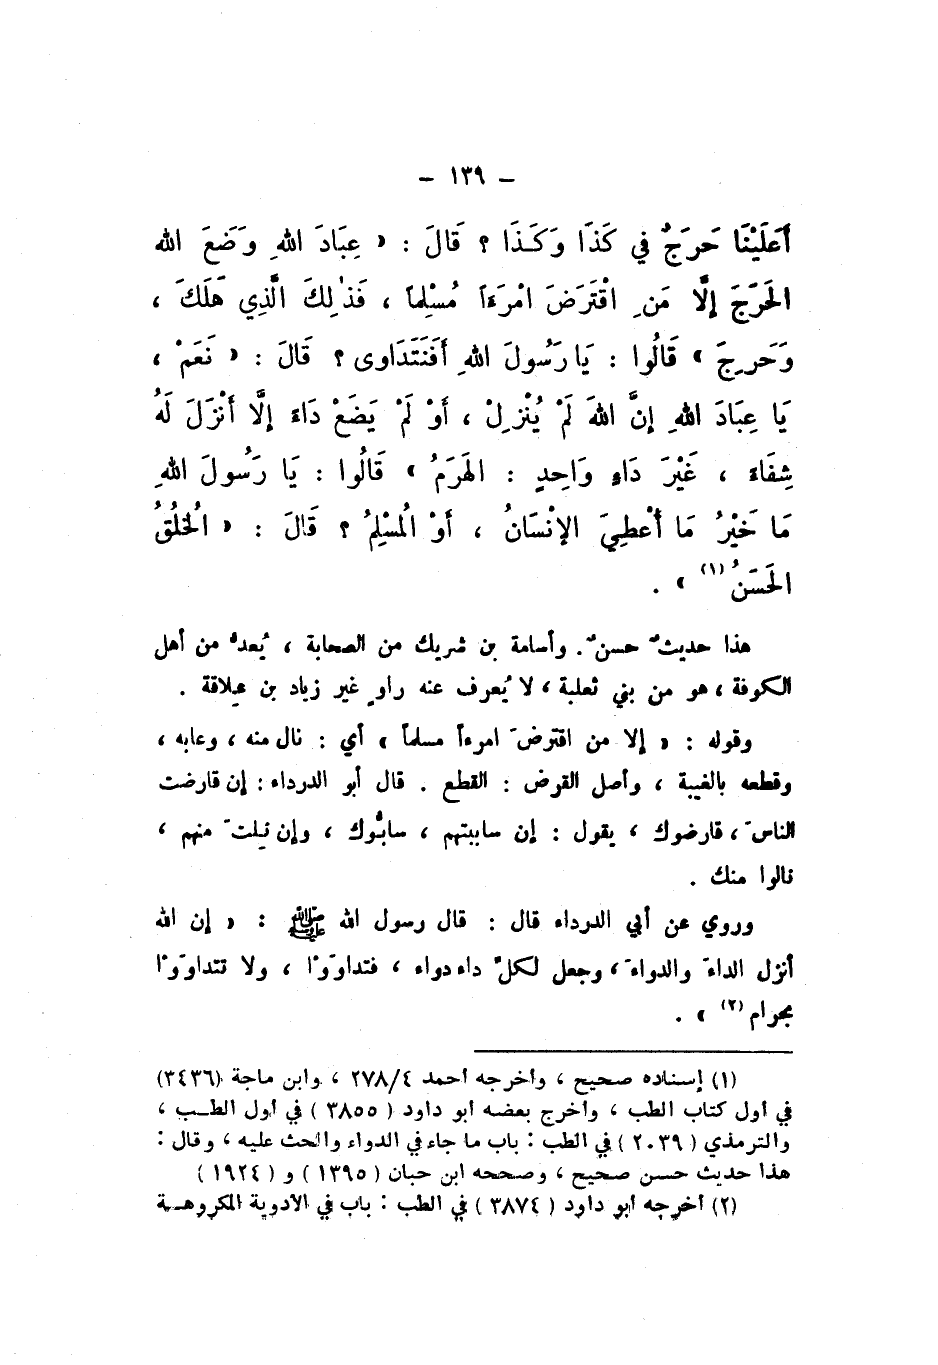 – ١٣٩ –
أَعَلَيْنَا حَرَجٌ في كَذَا وَكَذَا ؟ قَالَ : « عِبَادَ اللهِ وَضَعَ الله
الحَرَجَ إِلَّا مَنِ اقْتَرَضَ امْرَءَاً مُسْلِماً ، فَذٰلِكَ الَّذِي هَلَكَ ،
وَحَرِجَ » قَالُوا : يَا رَسُولَ اللهِ أَفَنَتَدَاوى ؟ قَالَ : « نَعَمْ ،
يَا عِبَادَ اللهِ إِنَّ اللهَ لَمْ يُنْزِلْ ، أَوْ لَمْ يَضَعْ دَاءً إِلَّا أَنْزَلَ لَهُ
شِفَاءً ، غَيْرَ دَاءٍ وَاحِدٍ : الهَرَمُ » قَالُوا : يَا رَسُولَ اللهِ
مَا خَيْرُ مَا أُعْطِيَ الإِنْسَانُ ، أَوْ الُمسْلِمُ ؟ قَالَ : « الُخلُقُ
الحَسَنُ (١) » .
هذا حديثٌ حسنٌ . وأسامة بن شريك من الصحابة ، يُعدُّ من أهل
الكوفة ، هو من بني ثعلبة ، لا يُعرف عنه راوٍ غير زياد بن عِلاقة .
وقوله : « إلا من اقترضَ امرءاً مسلماً » أي : نال منه ، وعابه ،
وقطعه بالغيبة ، وأصل القرض : القطع . قال أبو الدرداء : إن قارضت
الناسَ ، قارضوك ، يقول : إن سابيتهم ، سابُّوك ، وإن نِلتَ منهم ،
نالوا منك .
وروي عن أبي الدرداء قال : قال رسول الله ﷺ : « إن الله
أنزل الداءَ والدواءَ ، وجعل لكلِّ داء دواء ، فتداوَوْا ، ولا تتداوَوْا
بحرام (٢) » .
(١) إسناده صحيح ، وأخرجه أحمد ٢٧٨/٤ ، وابن ماجة (٣٤٣٦)
في أول كتاب الطب ، وأخرج بعضه أبو داود ( ٣٨٥٥ ) في أول الطـب ،
والترمذي ( ٢٠٣٩ ) في الطب : باب ما جاء في الدواء والحث عليه ، وقال :
هذا حديث حسن صحيح ، وصححه ابن حبان ( ١٣٩٥ ) و ( ١٩٢٤ )
(٢) أخرجه أبو داود ( ٣٨٧٤ ) في الطب : باب في الأدوية المكروهـة